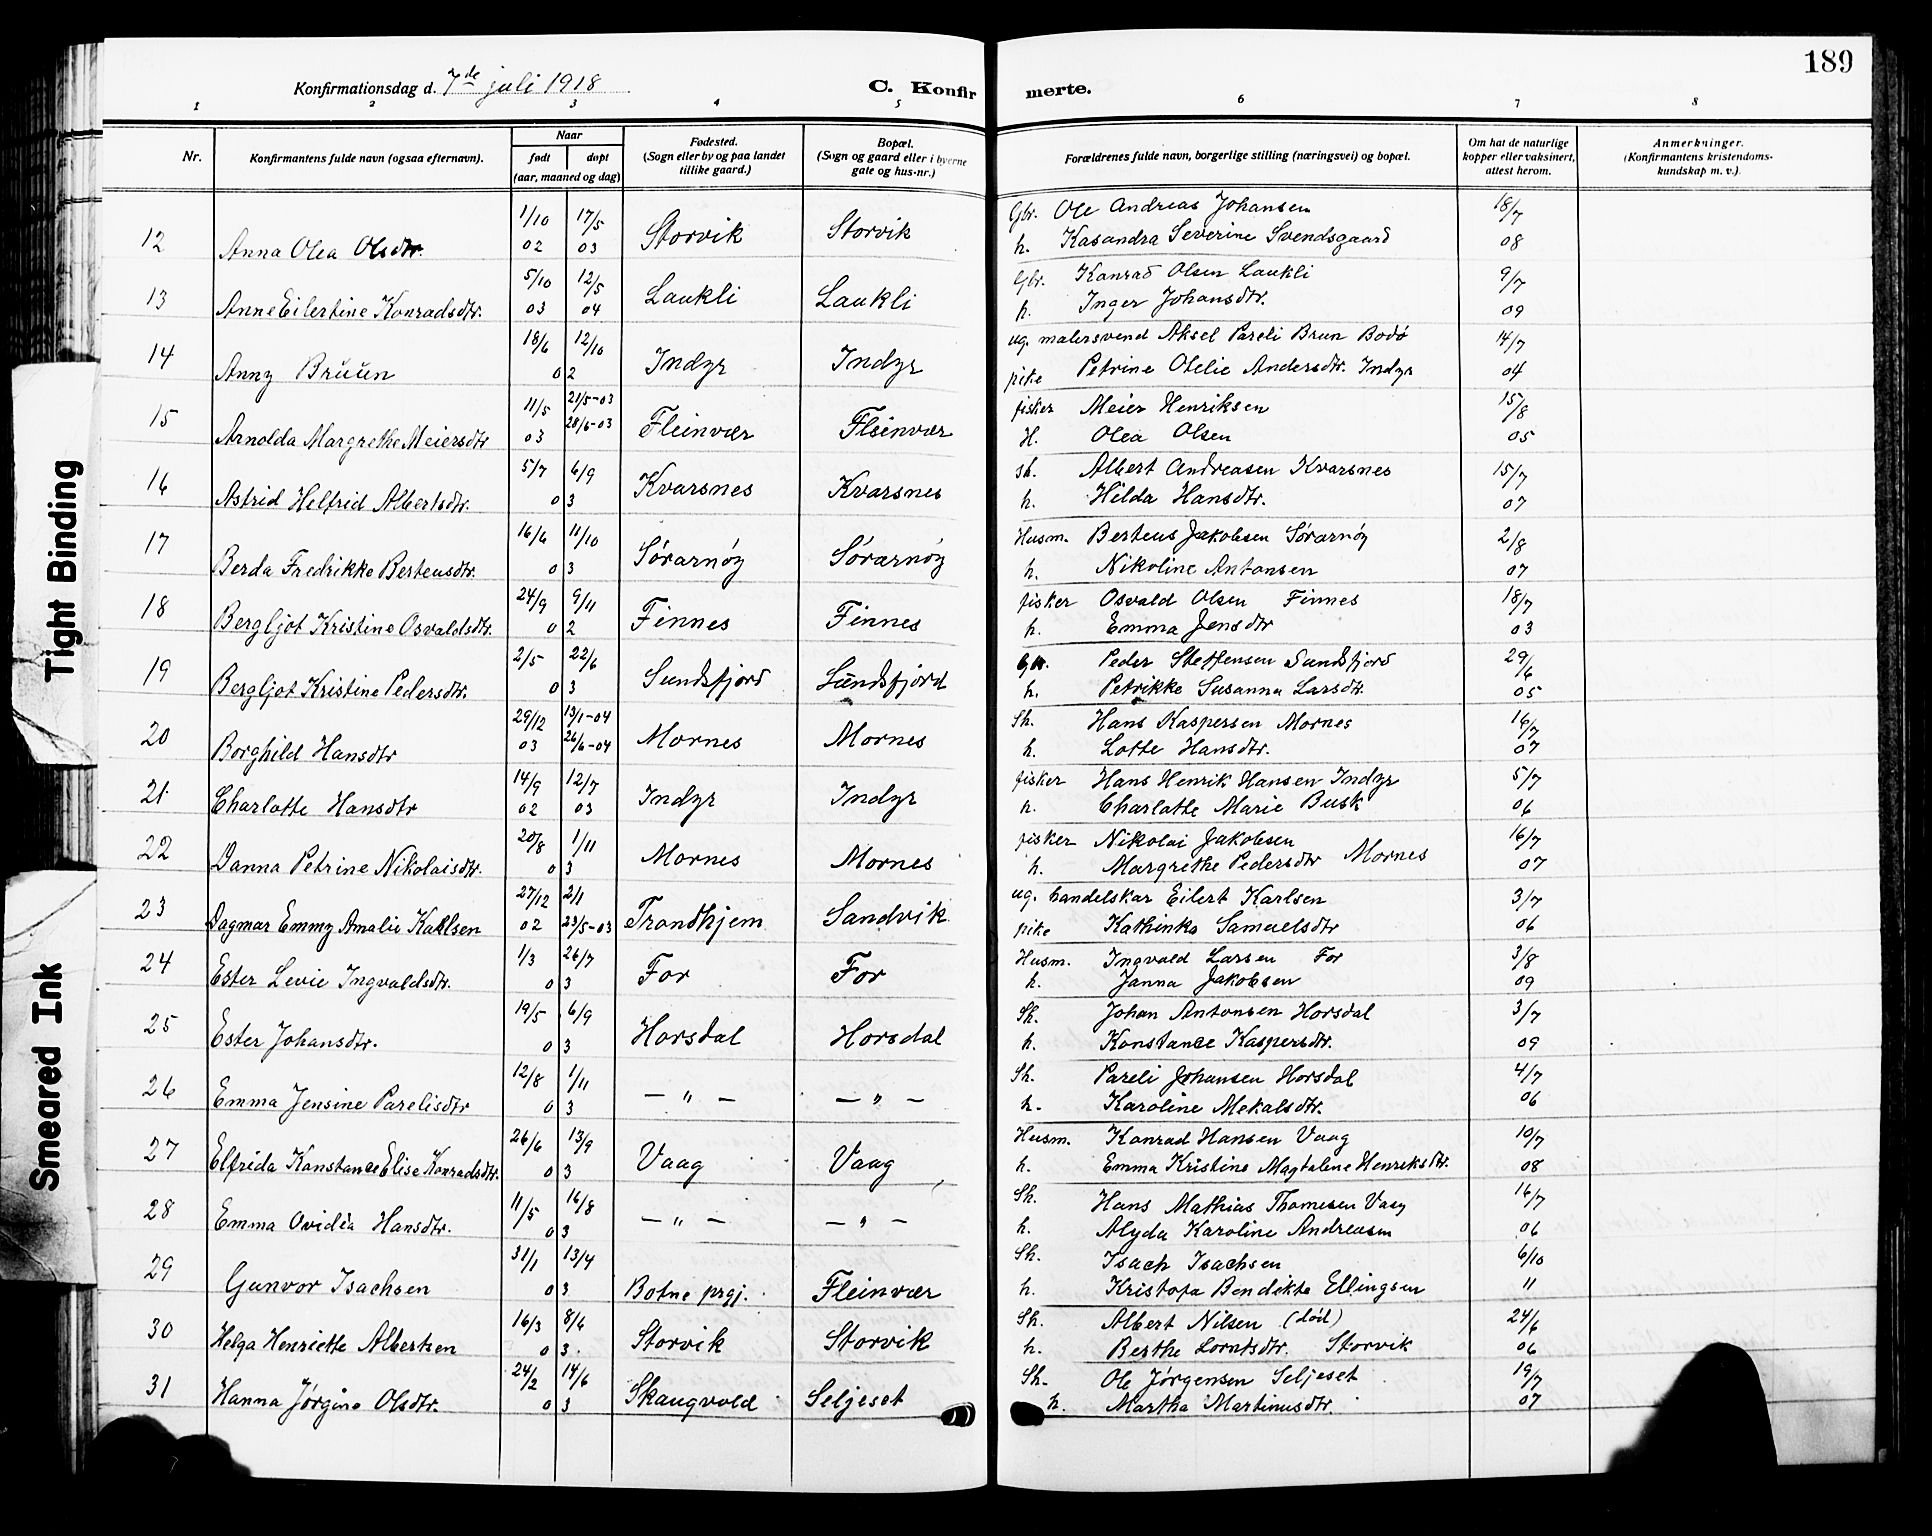 189
Konfirmationsdag d. 7de juli 1918
C. Konfirmerte.
1 2 3 4 5 6 7 8
Nr.
Konfirmantens fulde navn (ogsaa efternavn).
Naar
født døpt
(aar, maaned og dag)
Fødested.
(Sogn eller by og paa landet
tillike gaard.)
Bopæl.
(Sogn og gaard eller i byerne
gate og hus-nr.)
Forældrenes fulde navn, borgerlige stilling (næringsvei) og bopæl.
Om hat de naturlige
kopper eller vaksinert,
attest herom.
Anmerkninger.
(Konfirmantens kristendoms-
kundskap m. v.)
1/10 17/5 Gbr. Ole Andreas Johansen 18/7
12 Anna Olea Olsdtr. 02 03 Storvik Storvik h. Kasandra Severine Svendsgaard 08
5/10 12/5 Gbr. Konrad Olsen Laukli 9/7
13 Anne Eilertine Konradsdtr. 03 04 Laukli Laukli h. Inger Johansdtr. 09
18/6 12/10 ug. malersvend Aksel Pareli Brun Bodø 14/7
14 Anny Brüün 02 Indyr Indyr pike Petrine Otelie Andersdtr. Indyr 04
11/5 21/5-03 fisker Meier Henriksen 15/8
15 Arnolda Margrethe Meiersdtr 03 28/6-03 Fleinvær Fleinvær H. Olea Olsen 05
5/7 6/9 sh. Albert Andreasen Kvarsnes 15/7
16 Astrid Helfrid Albertsdtr. 03 Kvarsnes Kvarsnes h. Hilda Hansdtr. 07
16/6 11/10 Husm. Berteus Jakobsen Sørarnøy 2/8
17 Berda Fredrikke Berteusdtr. 03 Sørarnøy Sørarnøy h. Nikoline Antonsen 07
24/9 9/11 fisker Osvald Olsen Finnes 18/7
18 Bergljot Kristine Osvaldsdtr. 02 Finnes Finnes h. Emma Jensdtr 03
2/5 22/6 Peder Steffensen Sundsfjord 29/6
19 Bergljot Kristine Pedersdtr. 03 Sundsfjord Sundsfjord h. Petrikke Susanna Larsdtr. 05
29/12 13/1-04 Sh. Hans Kaspersen Mornes 16/7
20 Borghild Hansdtr 03 26/6-04 Mornes Mornes h. Lotte Hansdtr. 07
14/9 12/7 fisker Hans Henrik Hansen Indyr 5/7
21 Charlotte Hansdtr 02 03 Indyr Indyr h. Charlotte Marie Busk 06
20/8 1/11 fisker Nikolai Jakobsen 16/7
22 Danna Petrine Nikolaisdtr. 03 Mornes Mornes h. Margrethe Pedersdtr Mornes 07
27/12 2/1 ug. handelskar Eilert Karlsen 3/7
23 Dagmar Emmy Amalie Karlsen 02 23/5-03 Trondhjem Sandvik pike Kathinka Samuelsdtr 06
1/3 26/7 Husm. Ingvald Larsen For 3/8
24 Ester Levie Ingvaldsdtr. 03 For For h. Janna Jakobsen 09
19/5 6/9 Sh. Johan Antonsen Horsdal 3/7
25 Ester Johansdtr. 03 Horsdal Horsdal h. Konstance Kaspersdtr. 09
12/8 1/11 Sh. Pareli Johansen Horsdal 4/7
26 Emma Jensine Parelisdtr 03 — " — — " — h. Karoline Mekalsdtr. 06
26/6 13/9 Husm. Konrad Hansen Vaag 10/7
27 Elfrida Konstance Elise Konradsdtr. 03 Vaag Vaag h. Emma Kristine Magdalene Henriksdtr. 08
11/5 16/8 Sh. Hans Mathias Thomesen Vaag 16/7
28 Emma Ovidia Hansdtr. 03 — " — — " — h. Alyda Karoline Andreasen 06
31/1 13/4 Sh. Isach Isachsen 6/10
29 Gunvor Isachsen 03 Botne prgj. Fleinvær h. Kristofa Bendikte Ellingsen 11
16/3 8/6 Sh. Albert Nilsen (død) 24/6
30 Helga Henriette Albertsen 03. Storvik Storvik h. Berthe Lorntsdtr. Storvik 06
24/2 14/6 Sh. Ole Jørgensen Seljeset 19/7
31 Hanna Jørgine Olsdtr. 03 Skaugvold Seljeset h. Martha Martinusdtr. 07
Tight Binding
Smeared Ink